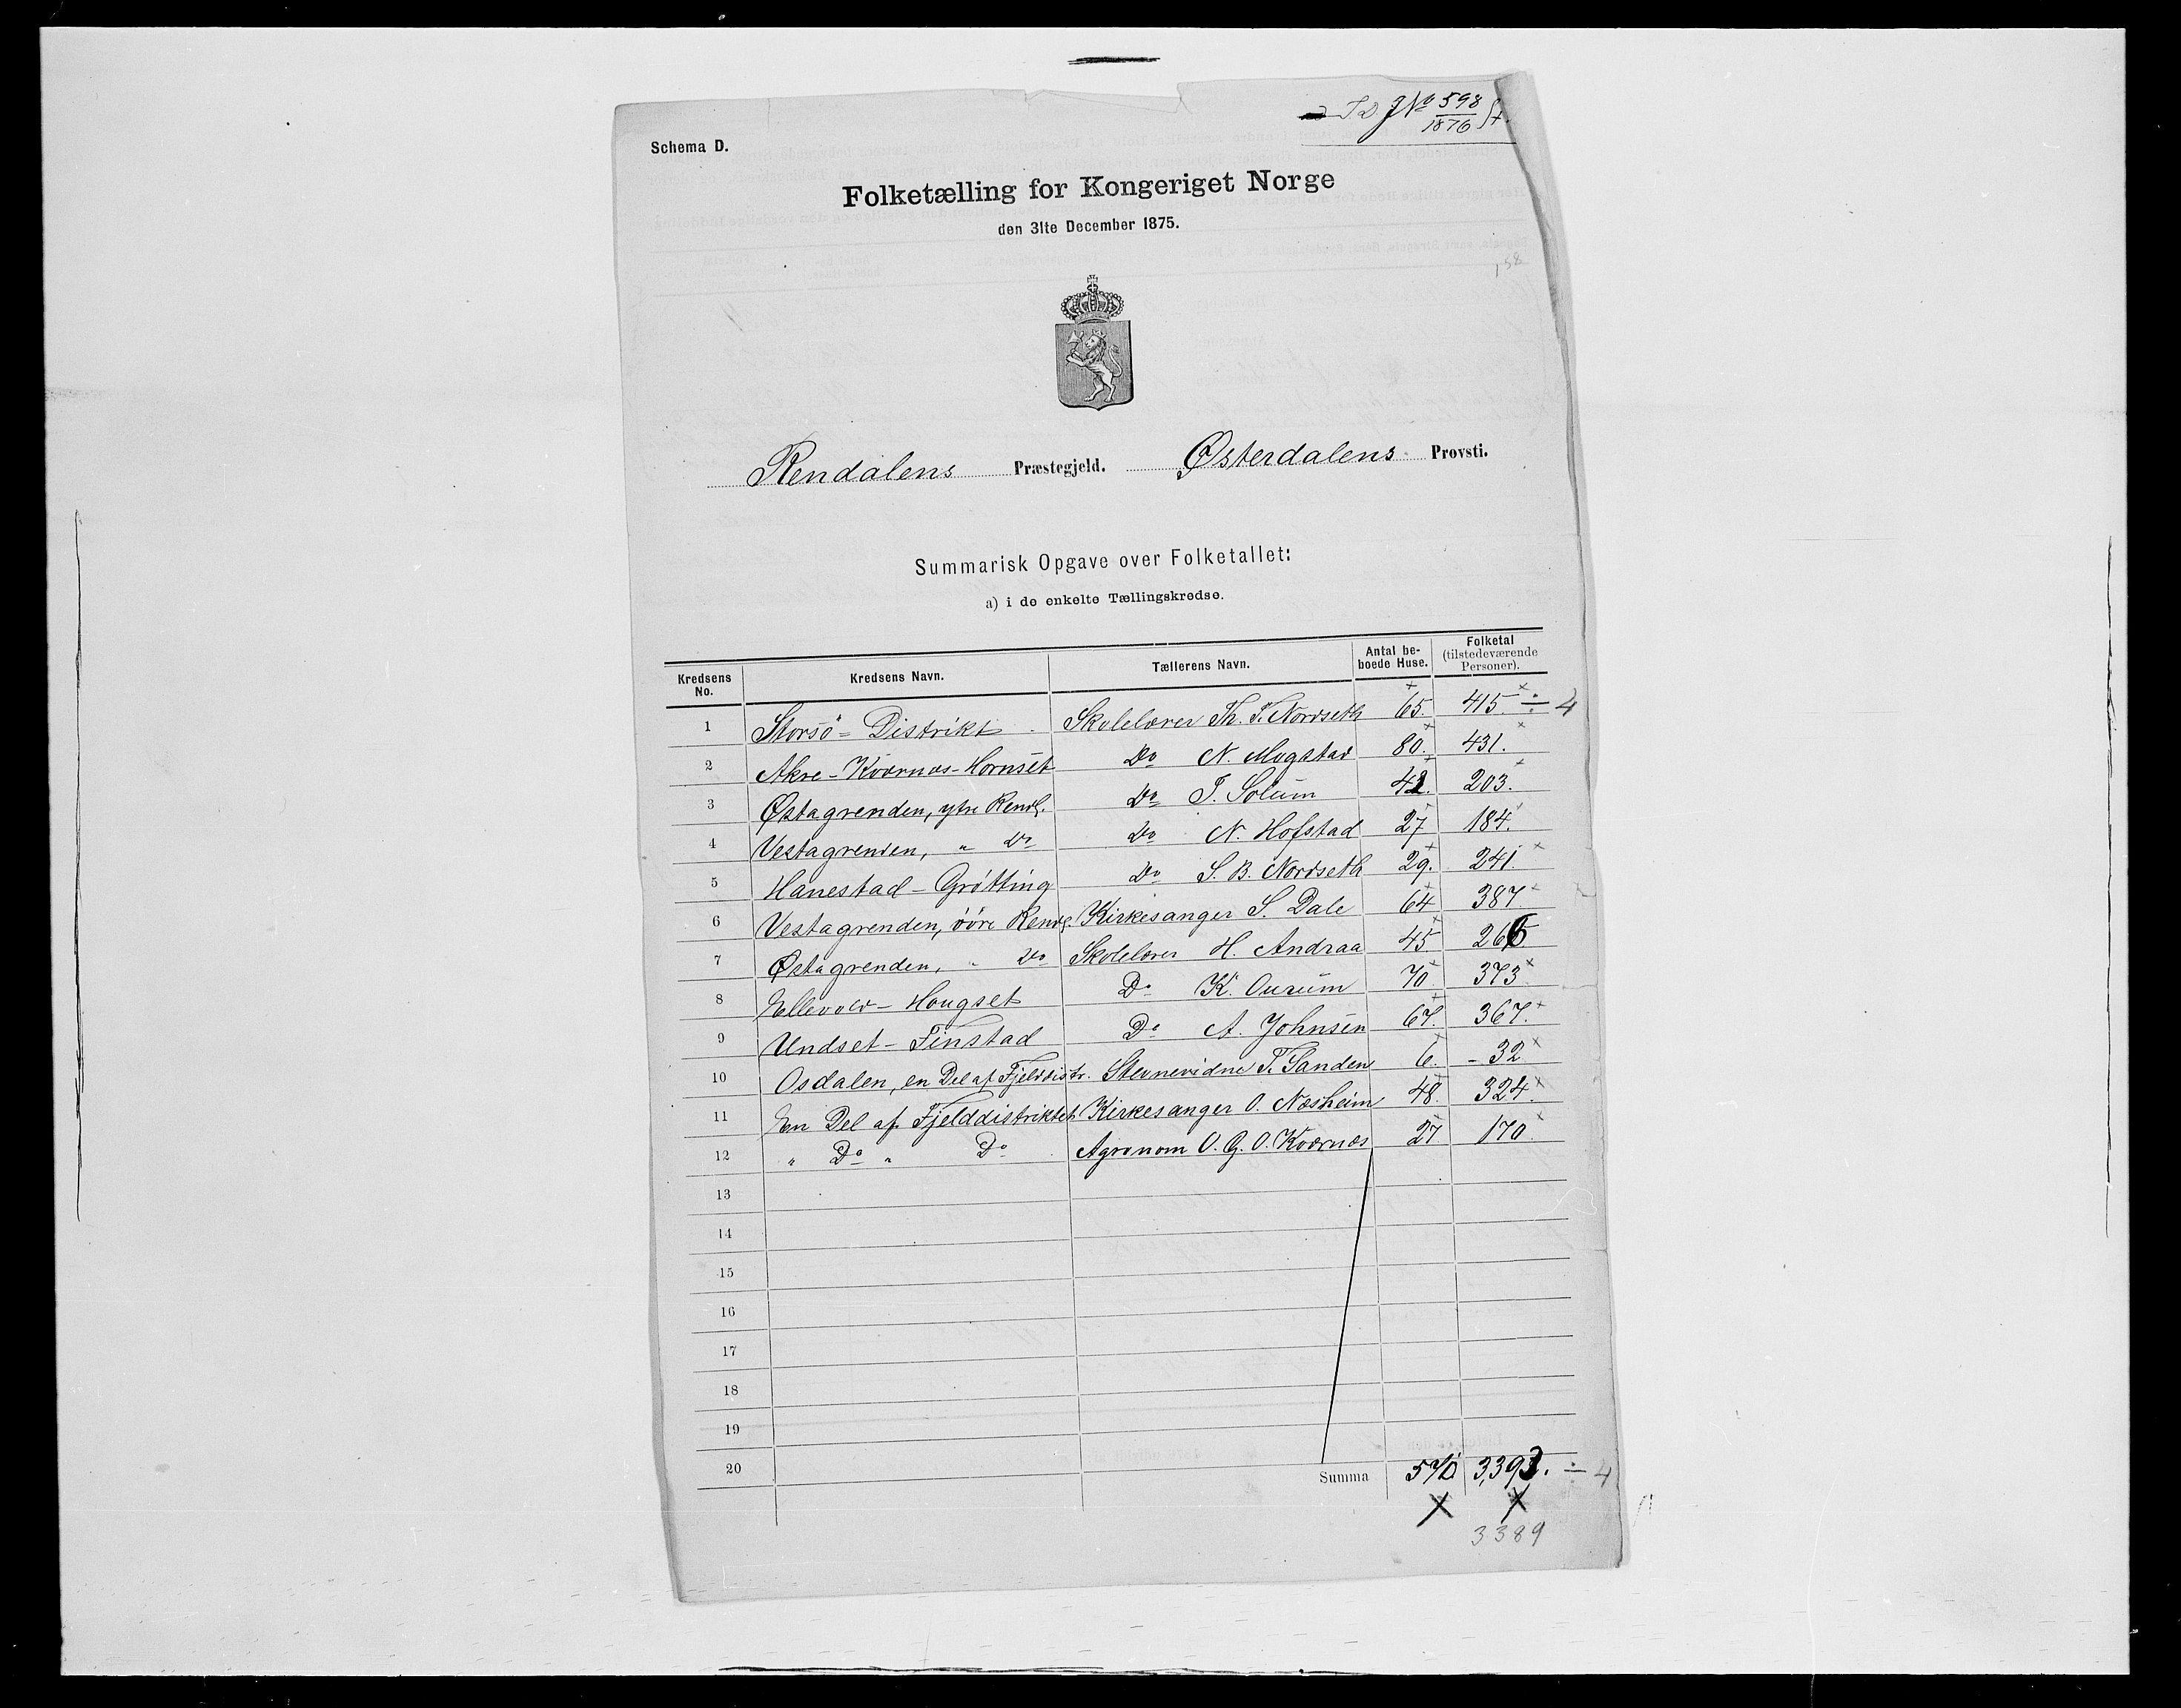 J No 598
1876
Schema D.
Folketælling for Kongeriget Norge
den 31te December 1875.
158
Rendalens Præstegjeld. Østerdalens Provsti.
Summarisk Opgave over Folketallet:
a) i de enkelte Tællingskredse.
Kredsens No. Kredsens Navn. Tællerens Navn. Antal beboede Huse. Folketal (tilstedeværende Personer).
1 Storsö-Distrikt Skolelærer Th. T. Nordseth 65. 415. ÷ 4
2 Akre-Kværnæs-Hornset Do N. Mogstad 80. 431.
3 Østagrenden, ytre Rendl. Do T. Solum 42. 203.
4 Vestagrenden, " Do Do N. Hofstad 27 184.
5 Hanestad-Grötting Do S. B. Nordseth 29. 241.
6 Vestagrenden, övre Rendl. Kirkesanger S. Dale 64 387
7 Østagrenden, " Do Skolelærer H. Andraa 45 266
8 Ellevold-Hougset Do K. Ourum 70 373
9 Undset-Finstad Do A. Johnsen 67. 367.
10 Osdalen, en Del af Fjelddistr. Stevnevidne T. Sanden 6. - 32
11 En Del af Fjelddistriktet Kirkesanger O. Næsheim 48. 324.
12 " Do " Do Agronom O. G. O. Kværnæs 27 170.
13
14
15
16
17
18
19
20
Summa 570 3,393. ÷ 4
3389